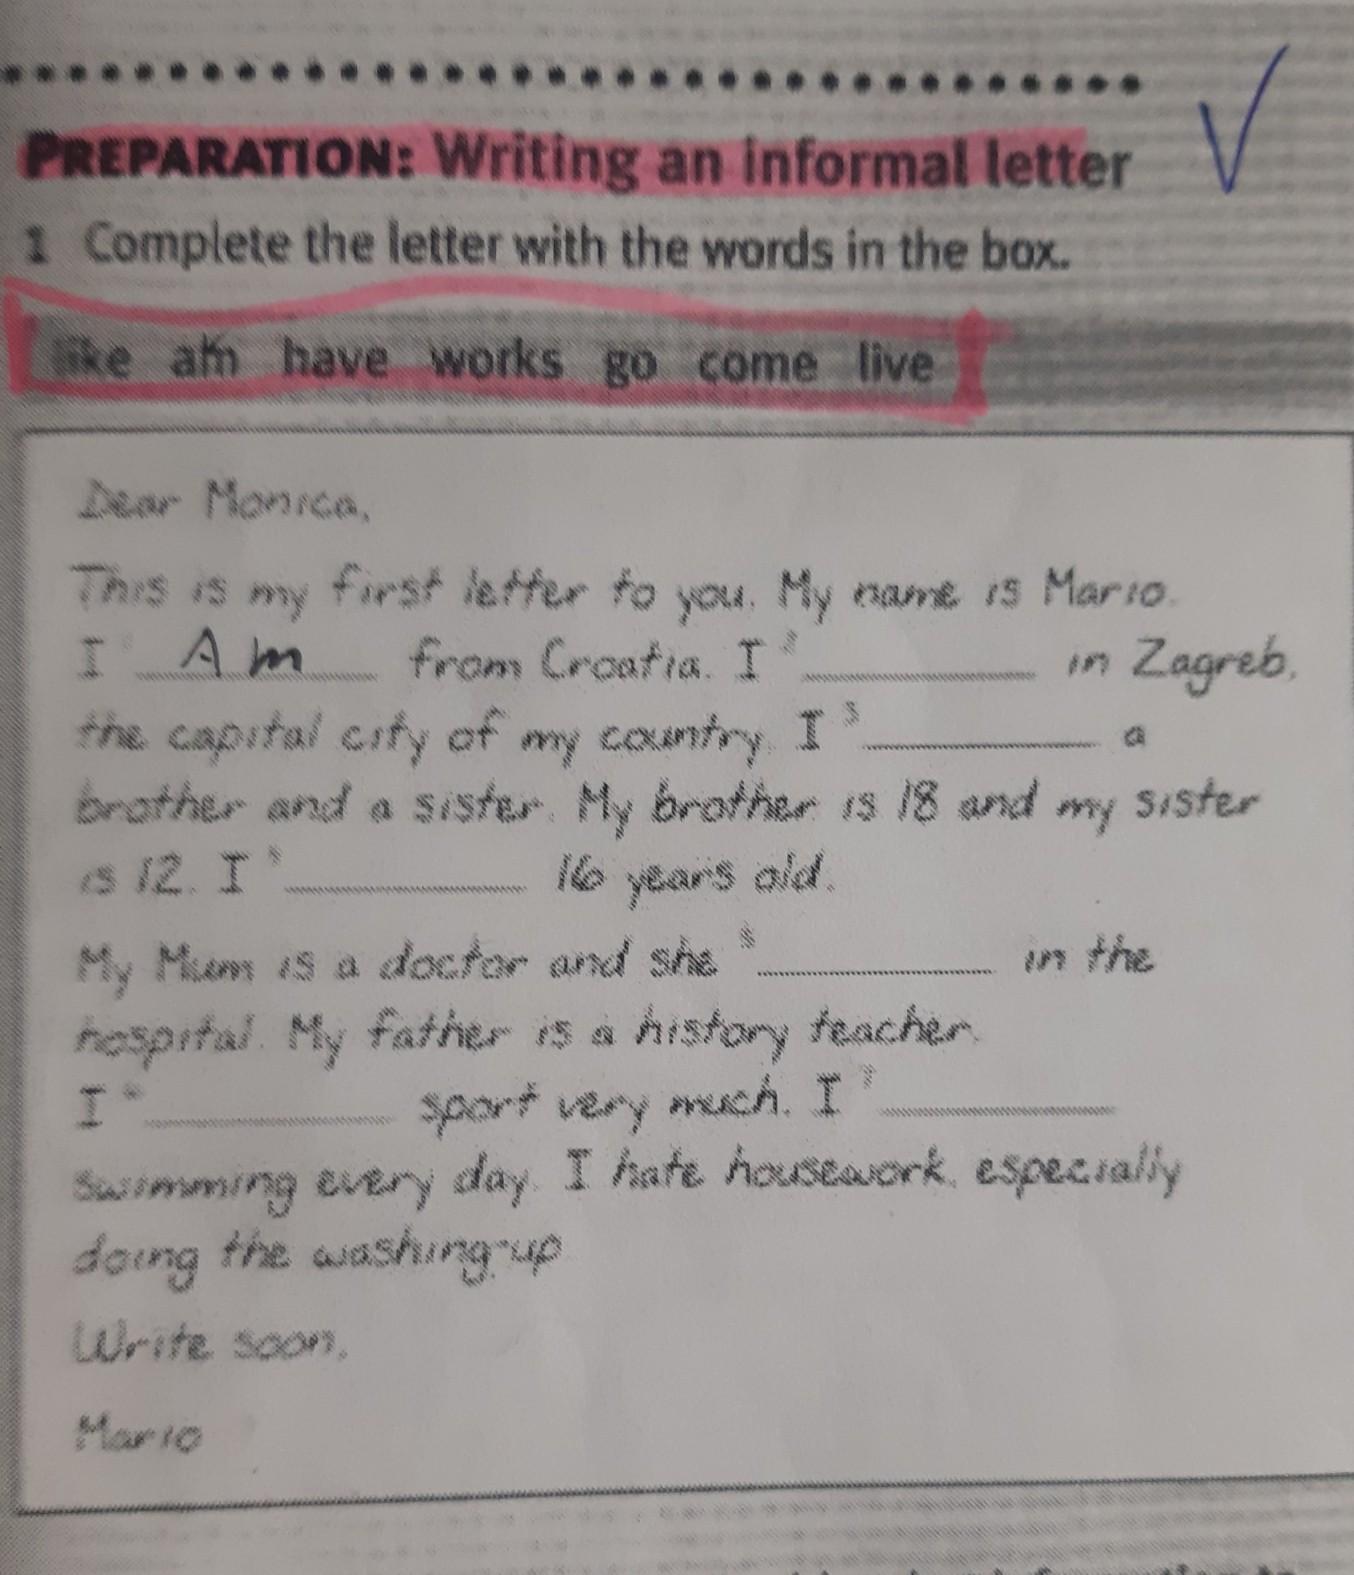 PREPARATION: Writing an informal letter
1 Complete the letter with the words in the box.
like am have works go come live
Dear Monica,
This is my first letter to you. My name is Mario.
I 1 Am from Croatia. I 2 ______ in Zagreb,
the capital city of my country. I 3 ______ a
brother and a sister. My brother is 18 and my sister
is 12. I 4 ______ 16 years old.
My Mum is a doctor and she 5 ______ in the
hospital. My father is a history teacher.
I 6 ______ sport very much. I 7 ______
swimming every day. I hate housework, especially
doing the washing-up.
Write soon,
Mario